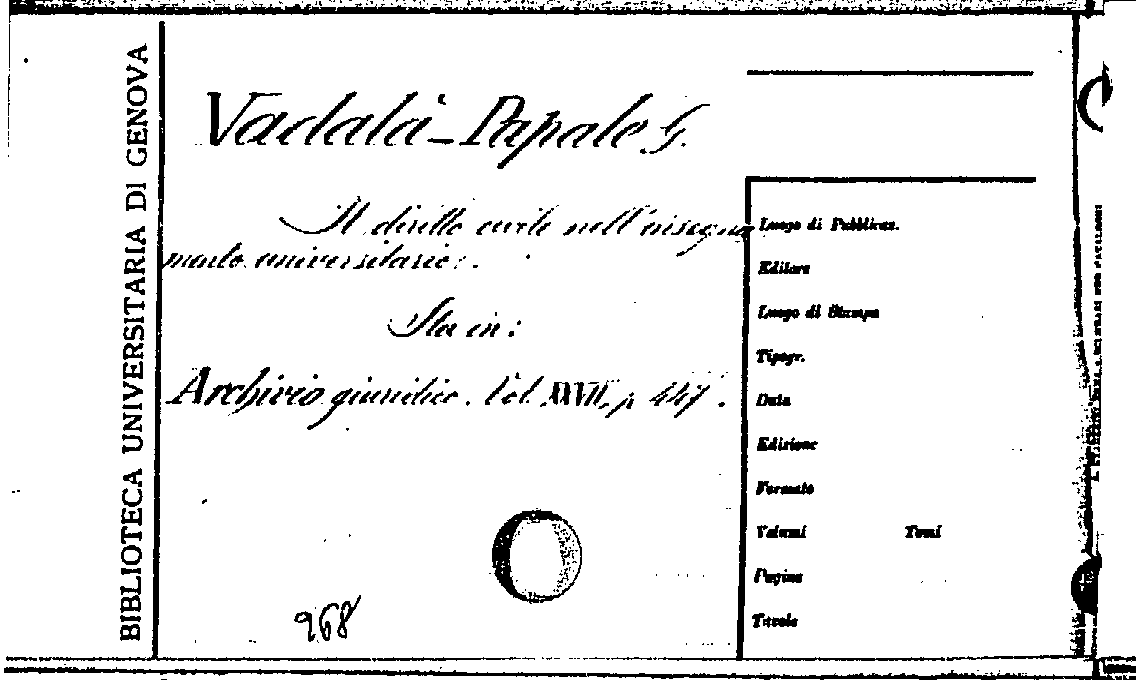 BIBLIOTECA UNIVERSITARIA DI GENOVA
Vadalà-Papale G.
Il diritto civile nell'insegna
mento universitario.
Sta in:
Archivio giuridico. Vol. XXVII, p. 447.
968
Luogo di Pubblicaz.
Editore
Luogo di Stampa
Tipogr.
Data
Edizione
Formato
Volumi Tomi
Pagine
Tavole